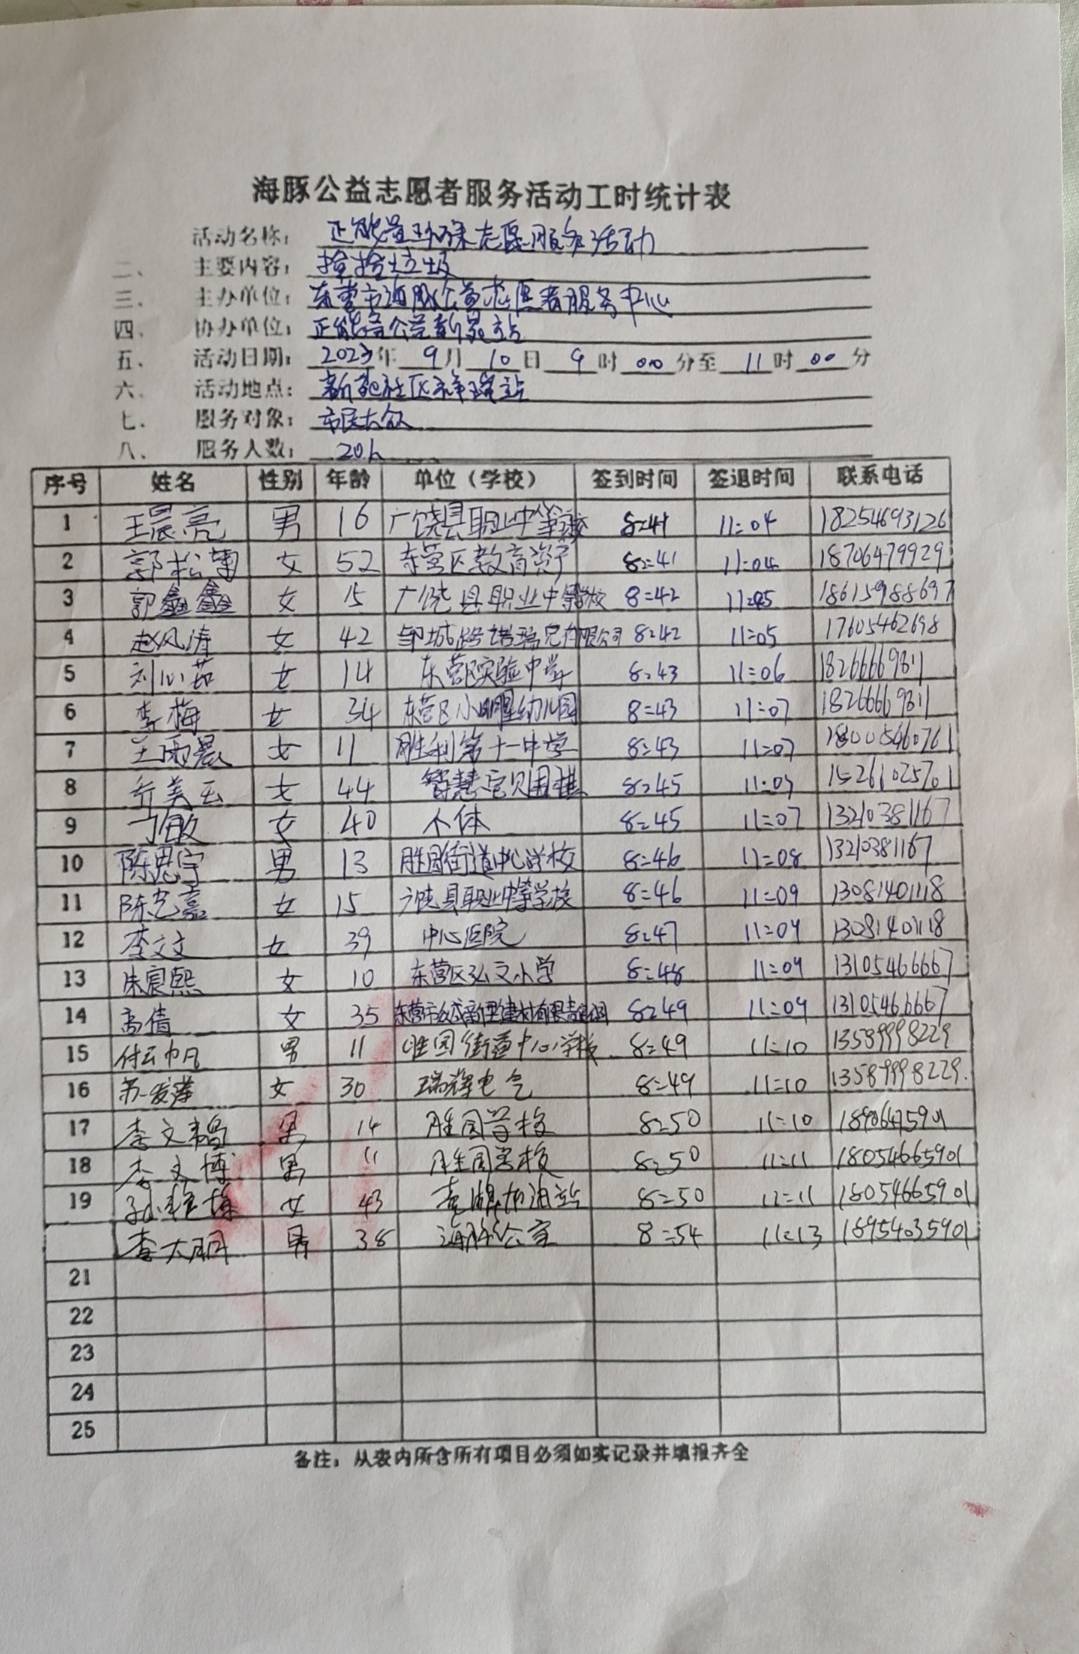 海豚公益志愿者服务活动工时统计表
活动名称： 正能量环保志愿服务活动
二、 主要内容： 捡拾垃圾
三、 主办单位： 东营市海豚公益志愿者服务中心
四、 协办单位： 正能量公益新苑站
五、 活动日期： 2023年 9月 10日 9时 00分至 11时 00分
六、 活动地点： 新苑社区
七、 服务对象： 市民大众
八、 服务人数： 20人
序号 姓名 性别 年龄 单位（学校） 签到时间 签退时间 联系电话
1 王晨亮 男 16 广饶县职业中等学校 8:41 11:04 18254693126
2 郭松菊 女 52 东营区教育 8:41 11:04 18706479929
3 郭鑫鑫 女 15 广饶县职业中等学校 8:42 11:05 18615988697
4 赵风涛 女 42 有限公司 8:42 11:05 17605462698
5 刘心茹 女 14 东营区实验中学 8:43 11:06 18266669811
6 李梅 女 34 东营区小明星幼儿园 8:43 11:07 18266669811
7 王雨晨 女 11 胜利第十一中学 8:43 11:07 18005460761
8 乔美玉 女 44 智慧宝贝围棋 8:45 11:07 15261025701
9 刁敏 女 40 个体 8:45 11:07 13210381167
10 陈思宇 男 13 胜园街道中心学校 8:46 11:08 13210381167
11 陈艺嘉 女 15 广饶县职业中等学校 8:46 11:09 13081401118
12 李文文 女 39 中心医院 8:47 11:09 13081401118
13 朱宸熙 女 10 东营区弘文小学 8:48 11:09 13105466667
14 高倩 女 35 东营市 8:49 11:09 13105466667
15 付云帆 男 11 胜园街道中心学校 8:49 11:10 13589998229
16 苏爱萍 女 30 瑞辉电气 8:49 11:10 13589998229
17 李文韬 男 14 胜园学校 8:50 11:10
18 李文博 男 11 胜园学校 8:50 11:11 18054665901
19 女 43 加油站 8:50 11:11 18054665901
李大朋 男 38 海豚公益 8:54 11:13 18954035901
21
22
23
24
25
备注：从表内所含所有项目必须如实记录并填报齐全